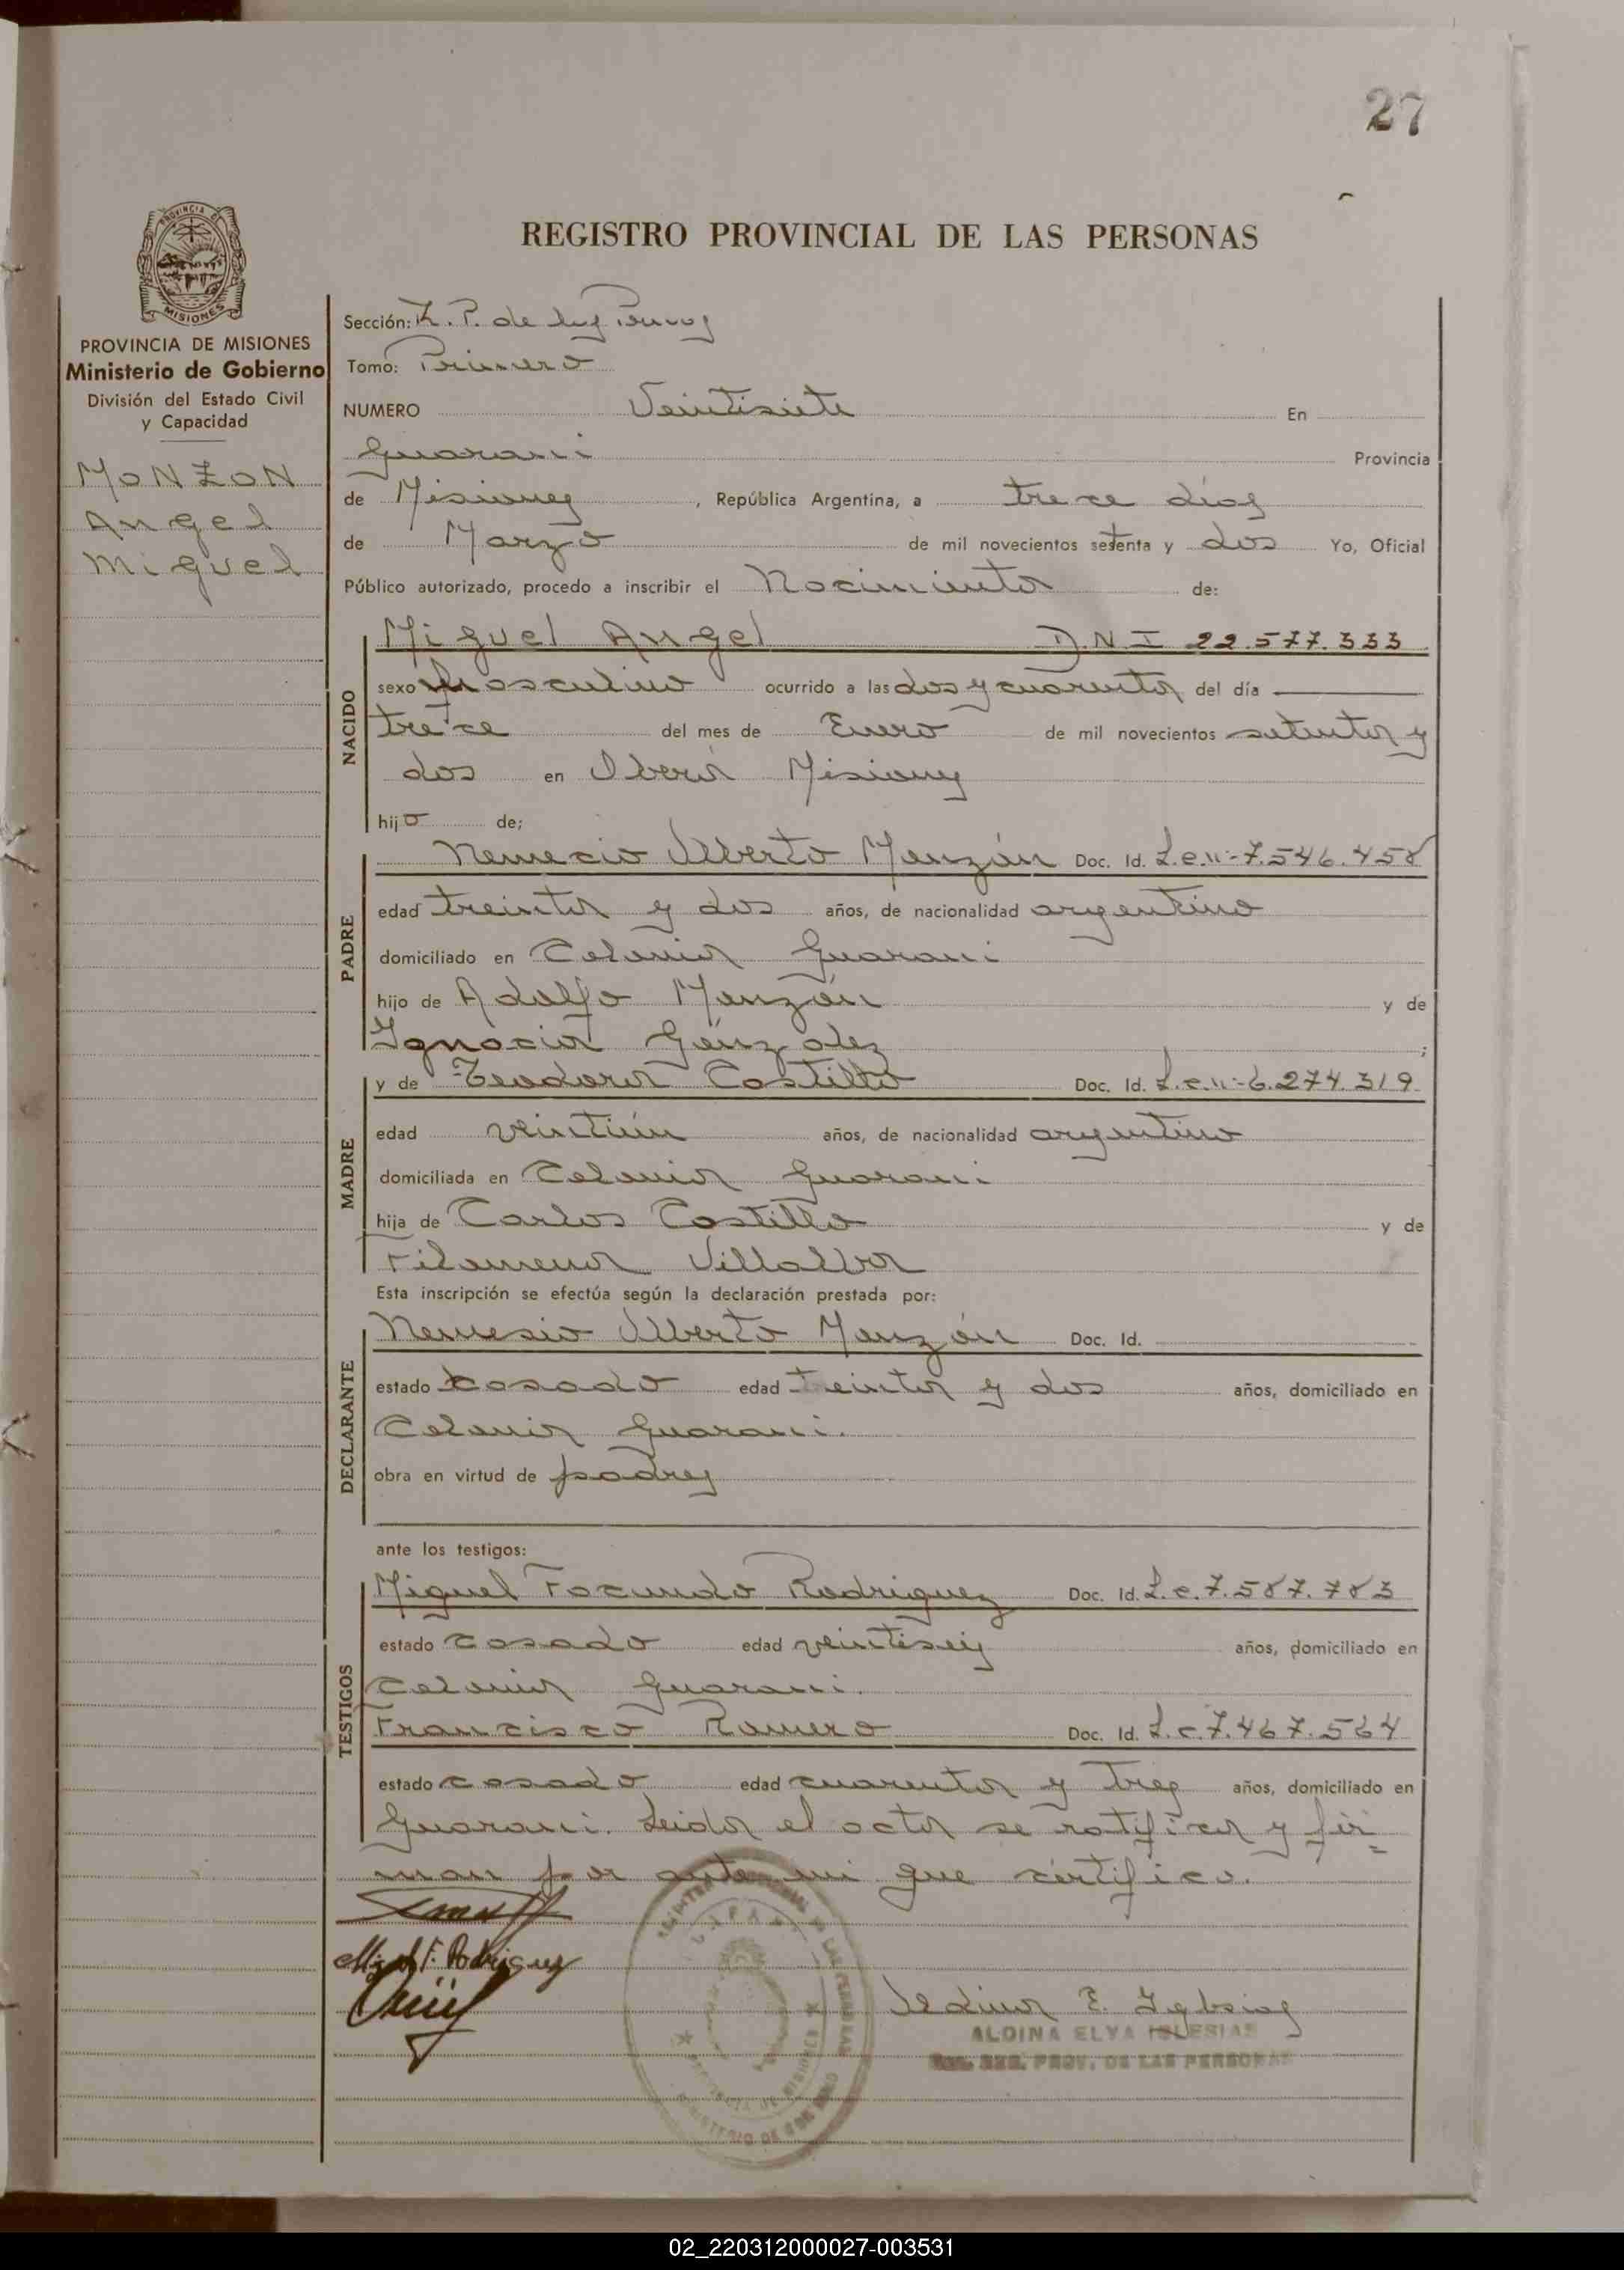 27
REGISTRO PROVINCIAL DE LAS PERSONAS
PROVINCIA DE
MISIONES
PROVINCIA DE MISIONES
Ministerio de Gobierno
División del Estado Civil
y Capacidad
MONZON
Angel
Miguel
Sección: R. P. de las
Tomo: Primero
NUMERO Veintisiete En
Guarani Provincia
de Misiones, República Argentina, a trece días
de Marzo de mil novecientos setenta y dos Yo, Oficial
Público autorizado, procedo a inscribir el Nacimiento de:
NACIDO
Miguel Angel D.N.I 22.577.333
sexo Masculino ocurrido a las dos y cuarenta del día
trece del mes de Enero de mil novecientos setenta y
dos en Oberá Misiones
hijo de;
PADRE
Nemecio Alberto Monzón Doc. Id. L.e.n:-7.546.458
edad treinta y dos años, de nacionalidad argentino
domiciliado en Colonia Guarani
hijo de Adolfo Monzón y de
Ignacia Gónzalez ;
MADRE
y de Teodora Costillo Doc. Id. L.c.n:-6.274.319
edad veintiún años, de nacionalidad argentino
domiciliada en Colonia Guarani
hija de Carlos Costillo y de
Filomena Villalba
Esta inscripción se efectúa según la declaración prestada por:
DECLARANTE
Nemesio Alberto Monzón Doc. Id.
estado casado edad treinta y dos años, domiciliado en
Colonia Guarani.
obra en virtud de padres
ante los testigos:
TESTIGOS
Miguel Facundo Rodriguez Doc. Id. L.e.7.587.783
estado casado edad veintiseis años, domiciliado en
Colonia Guarani.
Francisco Romero Doc. Id. L.e.7.467.564
estado casado edad cuarenta y tres años, domiciliado en
Guarani. Leida el acta se ratifica y fir=
man por ante mi que certifico.
F. Rodriguez
Aldina E. Iglesias
ALDINA ELVA IGLESIAS
REG. PROV. DE LAS PERSONAS
02_220312000027-003531